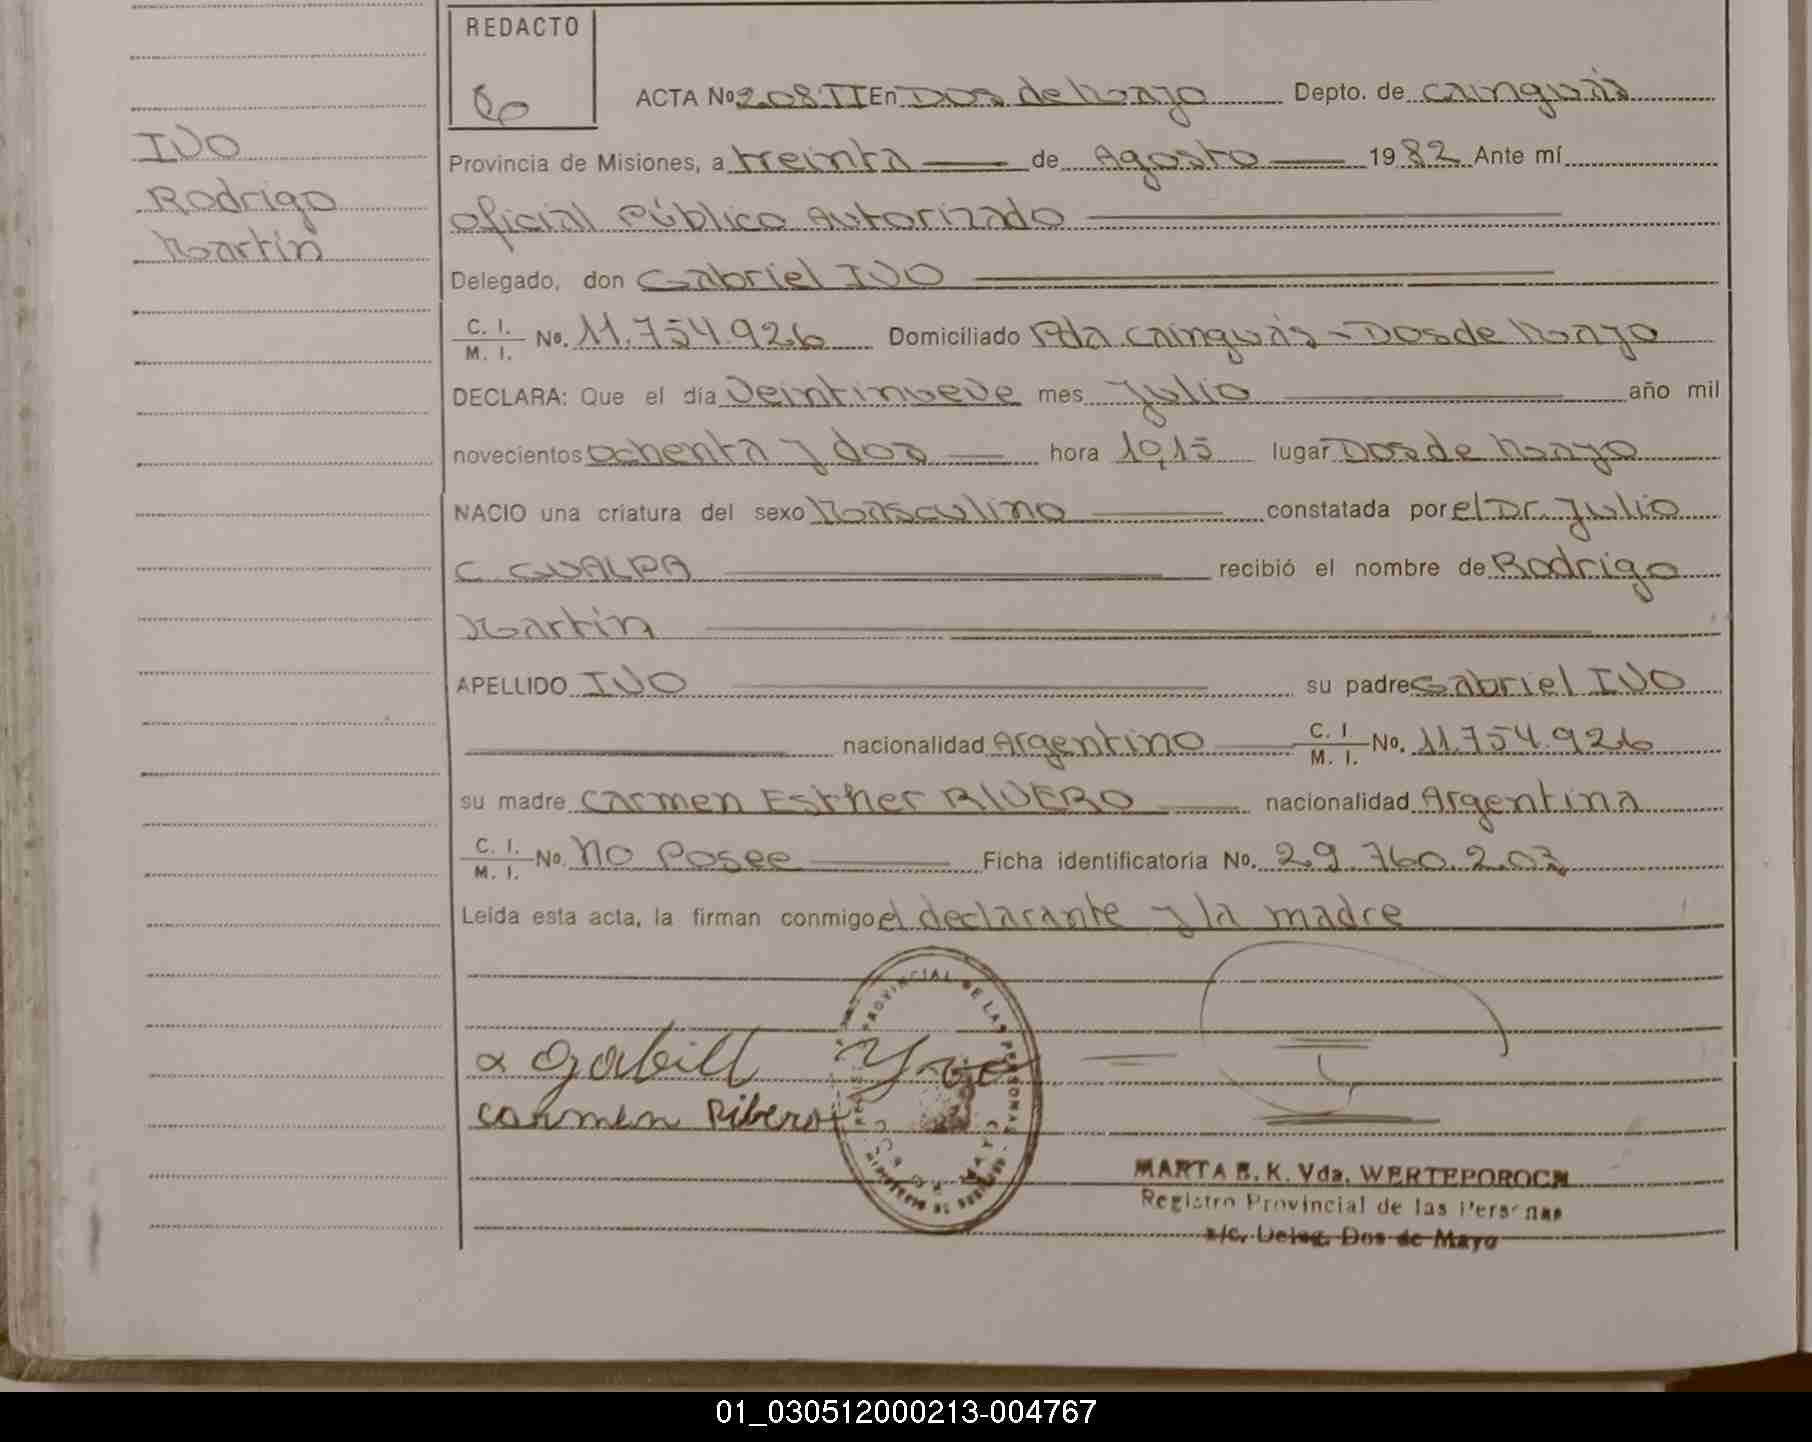 REDACTO
ACTA Nº 208 TI En Dos de Mayo Depto. de Cainguás
IVO
Provincia de Misiones, a treinta de Agosto 1982 Ante mí
Rodrigo
oficial Público Autorizado
Martín
Delegado, don Gabriel IVO
C. I. M. I. Nº. 11.754.926 Domiciliado Pda Cainguás - Dos de Mayo
DECLARA: Que el día Veintinueve mes Julio año mil
novecientos ochenta y dos hora 19,15 lugar Dos de Mayo
NACIO una criatura del sexo Masculino constatada por el Dr. Julio
C. GUALPA recibió el nombre de Rodrigo
Martín
APELLIDO IVO su padre Gabriel IVO
nacionalidad Argentino C. I. M. I. Nº. 11.754.926
su madre Carmen Esther RIVERO nacionalidad Argentina
C. I. M. I. Nº. no Posee Ficha identificatoria Nº. 29.760.203
Leída esta acta, la firman conmigo el declarante y la madre
PROVINCIAL DE LAS PERSONAS
Carmen Ribero
MARTA E. K. Vda. WERTEPOROCH
Registro Provincial de las Personas
a/c. Deleg. Dos de Mayo
01_030512000213-004767